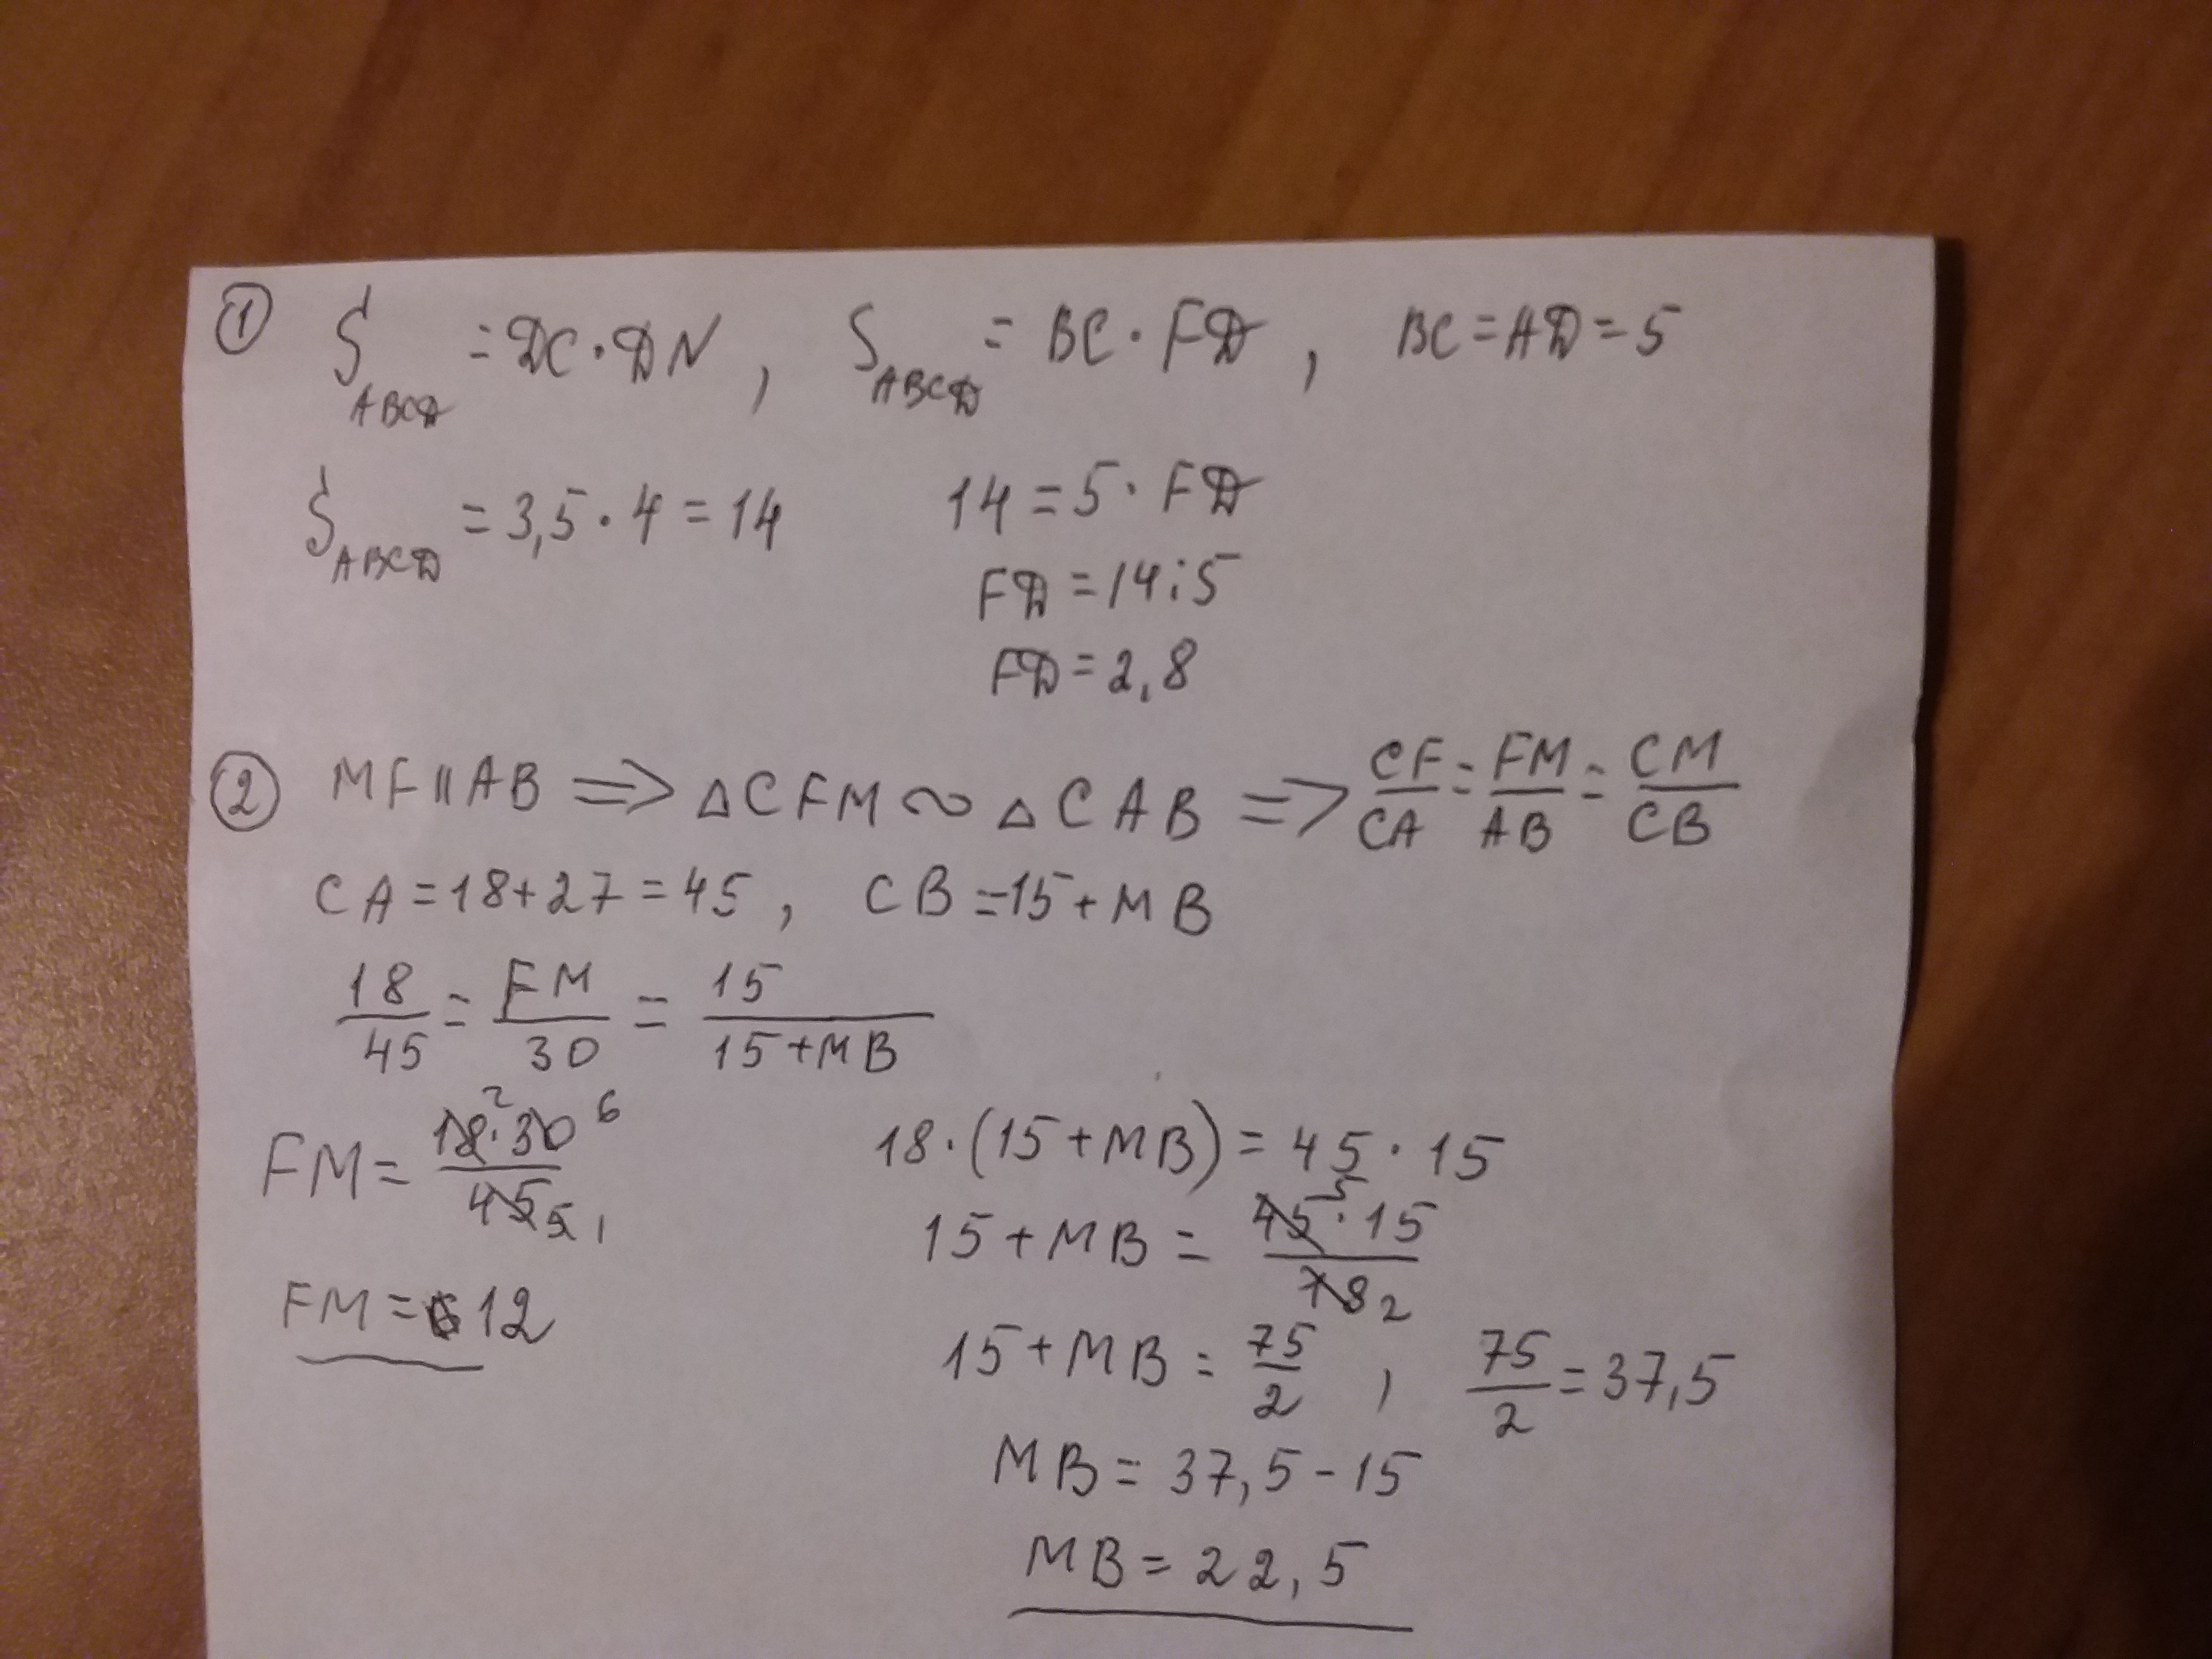 ① S_ABCD = DC · DN, S_ABCD = BC · FD, BC = AD = 5
S_ABCD = 3,5 · 4 = 14 14 = 5 · FD
FD = 14 : 5
FD = 2,8
② MF || AB ⇒ △CFM ∾ △CAB ⇒ CF/CA = FM/AB = CM/CB
CA = 18 + 27 = 45, CB = 15 + MB
18/45 = FM/30 = 15/(15 + MB)
FM = (18² · 30⁶)/(45₅ ₁) 18 · (15 + MB) = 45 · 15
15 + MB = (45⁵ · 15)/(18₂)
FM = 12 15 + MB = 75/2, 75/2 = 37,5
MB = 37,5 - 15
MB = 22,5